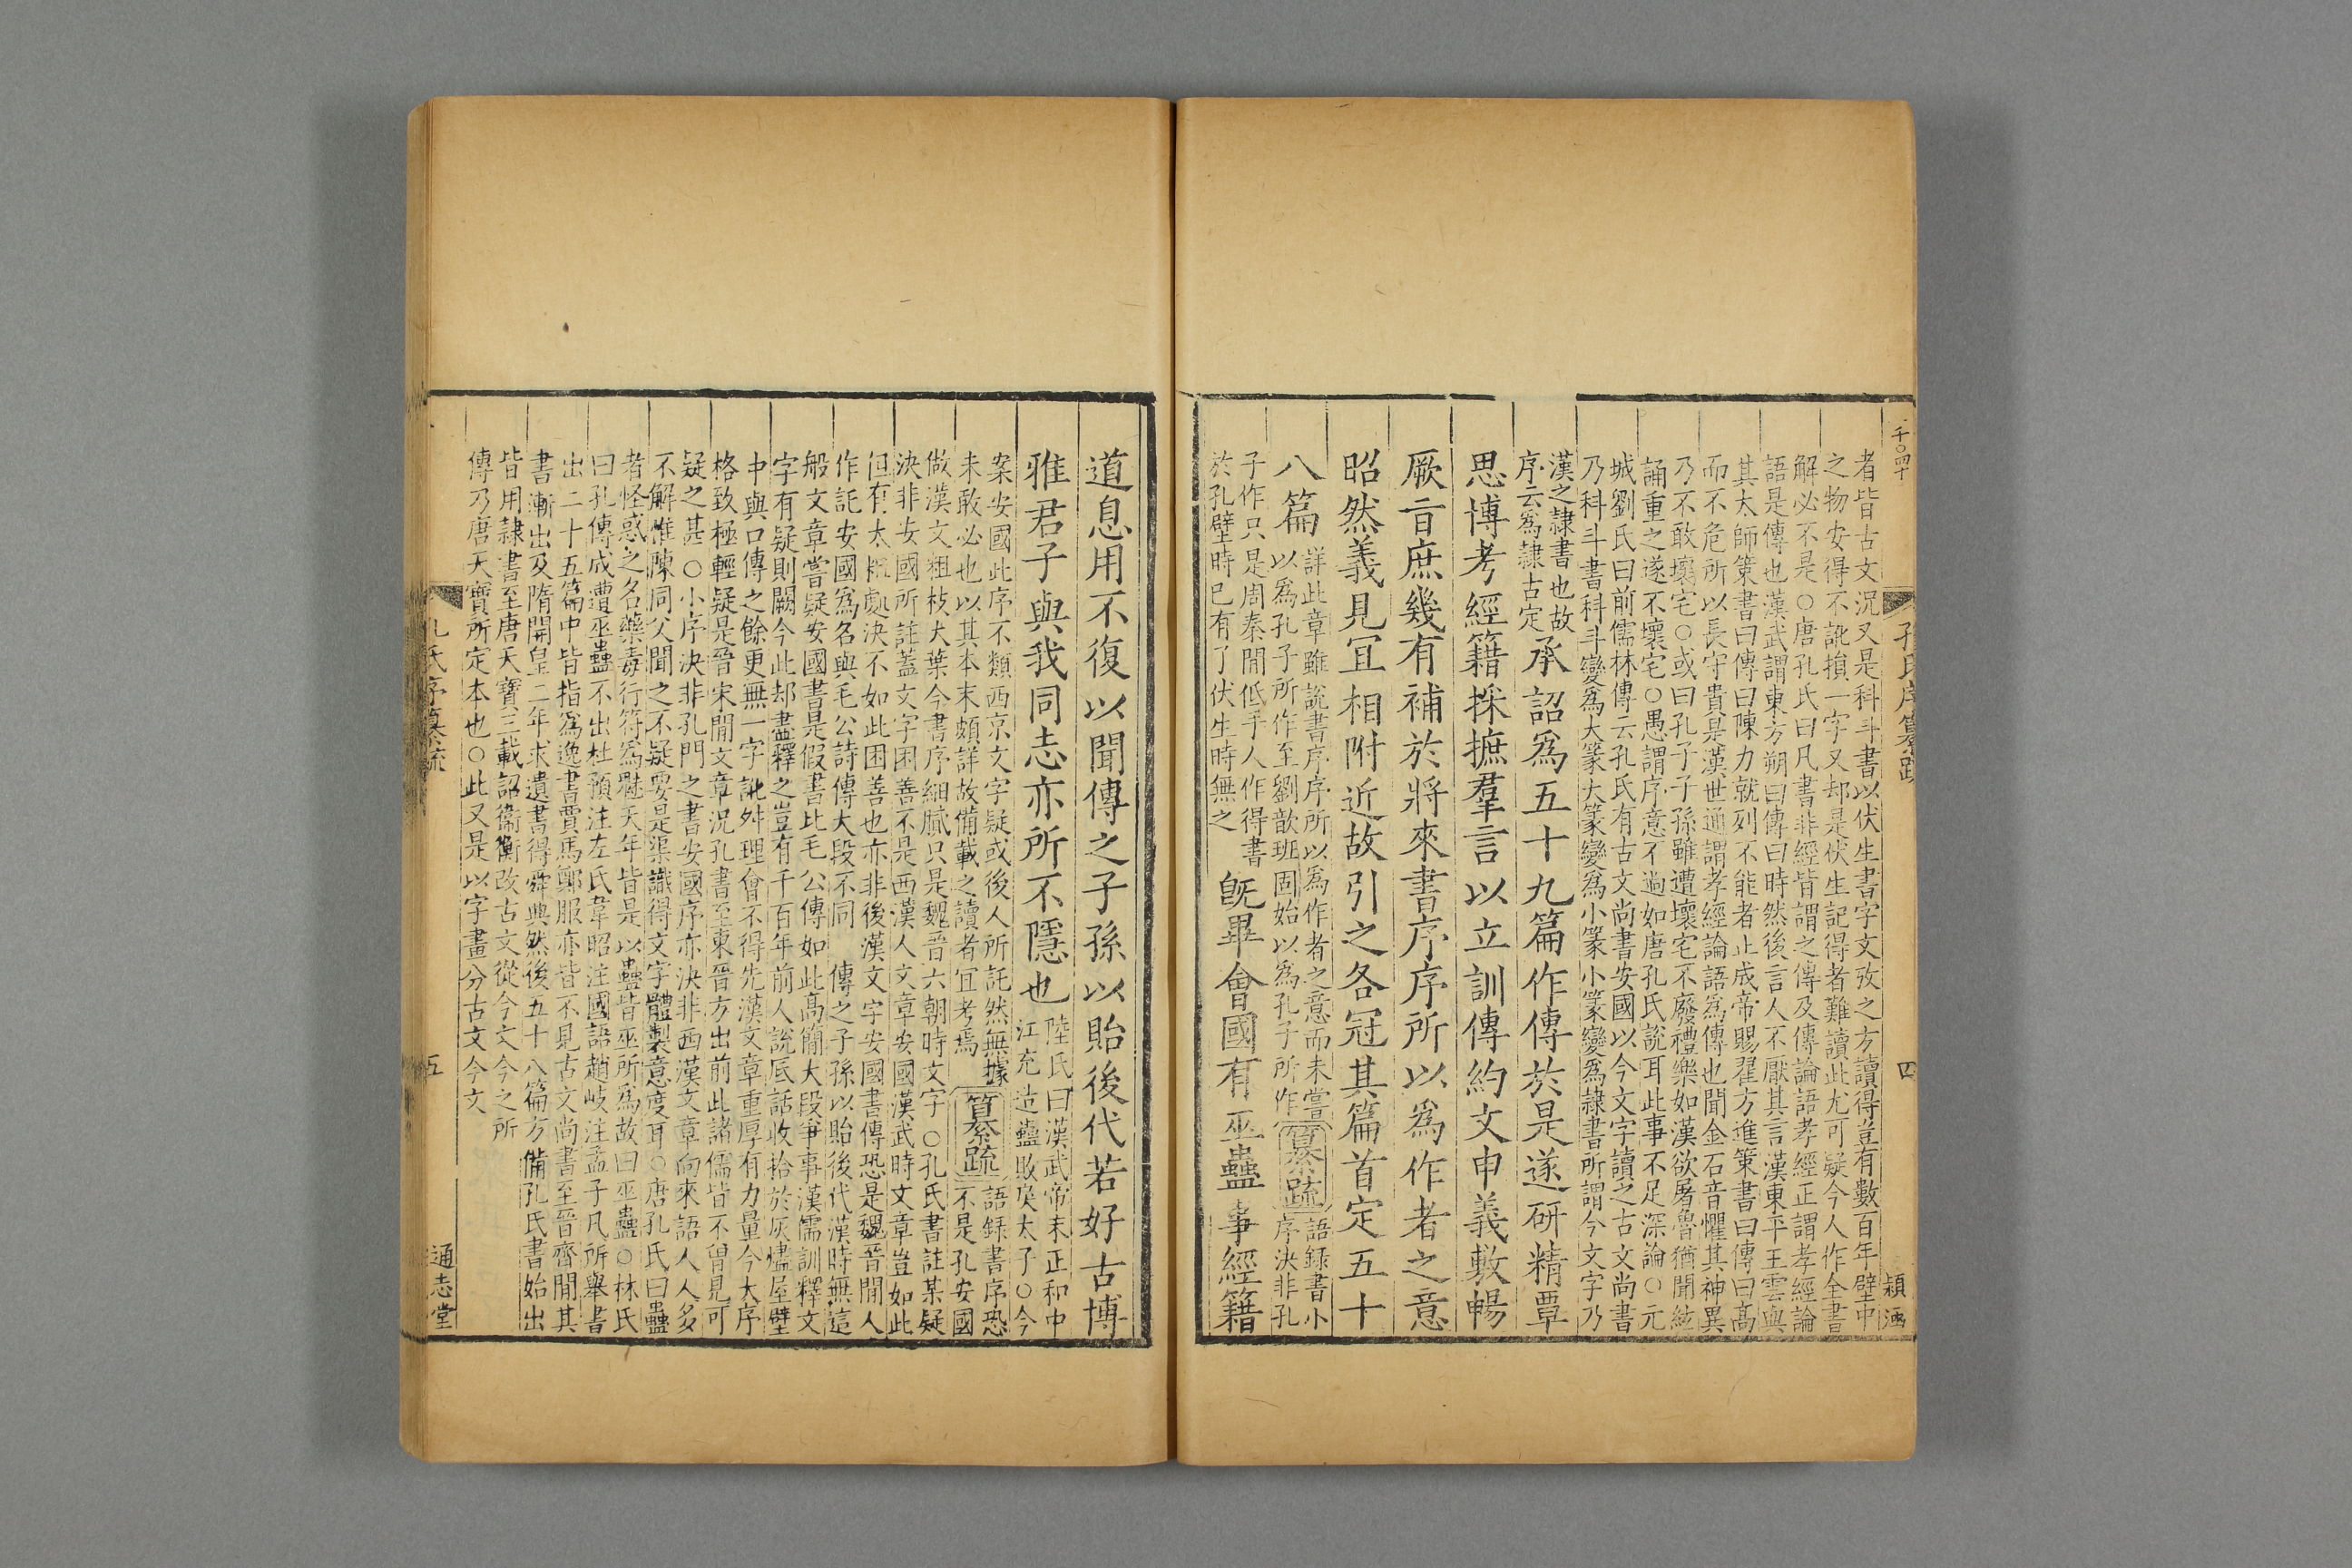 千〇四十
孔氏序纂疏
四
穎涵
者皆古文況又是科斗書以伏生書字文攷之方讀得豈有數百年壁中
之物安得不訛損一字又却是伏生記得者難讀此尤可疑今人作全書
解必不是〇唐孔氏曰凡書非經皆謂之傳及傳論語孝經正謂孝經論
語是傳也漢武謂東方朔曰傳曰時然後言人不厭其言漢東平王雲與
其太師策書曰傳曰陳力就列不能者止成帝賜翟方進策書曰傳曰高
而不危所以長守貴是漢世通謂孝經論語爲傳也聞金石音懼其神異
乃不敢壞宅〇或曰孔子子孫雖遭壞宅不廢禮樂如漢欲屠魯猶聞絃
誦重之遂不壞宅〇愚謂序意不過如唐孔氏說耳此事不足深論〇元
城劉氏曰前儒林傳云孔氏有古文尚書安國以今文字讀之古文尚書
乃科斗書科斗變爲大篆大篆變爲小篆小篆變爲隷書所謂今文字乃
漢之隷書也故
序云爲隷古定
承詔爲五十九篇作傳於是遂研精覃
思博考經籍採摭羣言以立訓傳約文申義敷暢
厥旨庶幾有補於將來書序序所以爲作者之意
昭然義見宜相附近故引之各冠其篇首定五十
八篇
詳此章雖說書序序所以爲作者之意而未嘗
以爲孔子所作至劉歆班固始以爲孔子所作
纂疏
語録書小
序決非孔
子作只是周秦閒低手人作得書
於孔壁時已有了伏生時無之
旣畢會國有巫蠱事經籍
道息用不復以聞傳之子孫以貽後代若好古博
雅君子與我同志亦所不隱也
陸氏曰漢武帝末正和中
江充造蠱敗戾太子〇今
案安國此序不類西京文字疑或後人所託然無據
未敢必也以其本末頗詳故備載之讀者宜考焉
纂疏
語録書序恐
不是孔安國
做漢文粗枝大葉今書序細膩只是魏晉六朝時文字〇孔氏書註某疑
決非安國所註蓋文字困善不是西漢人文章安國漢武時文章豈如此
但有太麤處決不如此困善也亦非後漢文字安國書傳恐是魏晉閒人
作託安國爲名與毛公詩傳大段不同 傳之子孫以貽後代漢時無這
般文章嘗疑安國書是假書比毛公傳如此高簡大段爭事漢儒訓釋文
字有疑則闕今此却盡釋之豈有千百年前人說底話收拾於灰燼屋壁
中與口傳之餘更無一字訛舛理會不得先漢文章重厚有力量今大序
格致極輕疑是晉宋閒文章況孔書至東晉方出前此諸儒皆不曾見可
疑之甚〇小序決非孔門之書安國序亦決非西漢文章向來語人人多
不解惟陳同父聞之不疑要是渠識得文字體製意度耳〇唐孔氏曰蠱
者怪惑之名藥毒行符爲魅夭年皆是以蠱皆巫所爲故曰巫蠱〇林氏
曰孔傳成遭巫蠱不出杜預注左氏韋昭注國語趙岐注孟子凡所舉書
出二十五篇中皆指爲逸書賈馬鄭服亦皆不見古文尚書至晉齊閒其
書漸出及隋開皇二年求遺書得舜典然後五十八篇方備孔氏書始出
皆用隸書至唐天寶三載詔衞衡改古文從今文今之所
傳乃唐天寶所定本也〇此又是以字畫分古文今文
孔氏序纂疏
五
通志堂